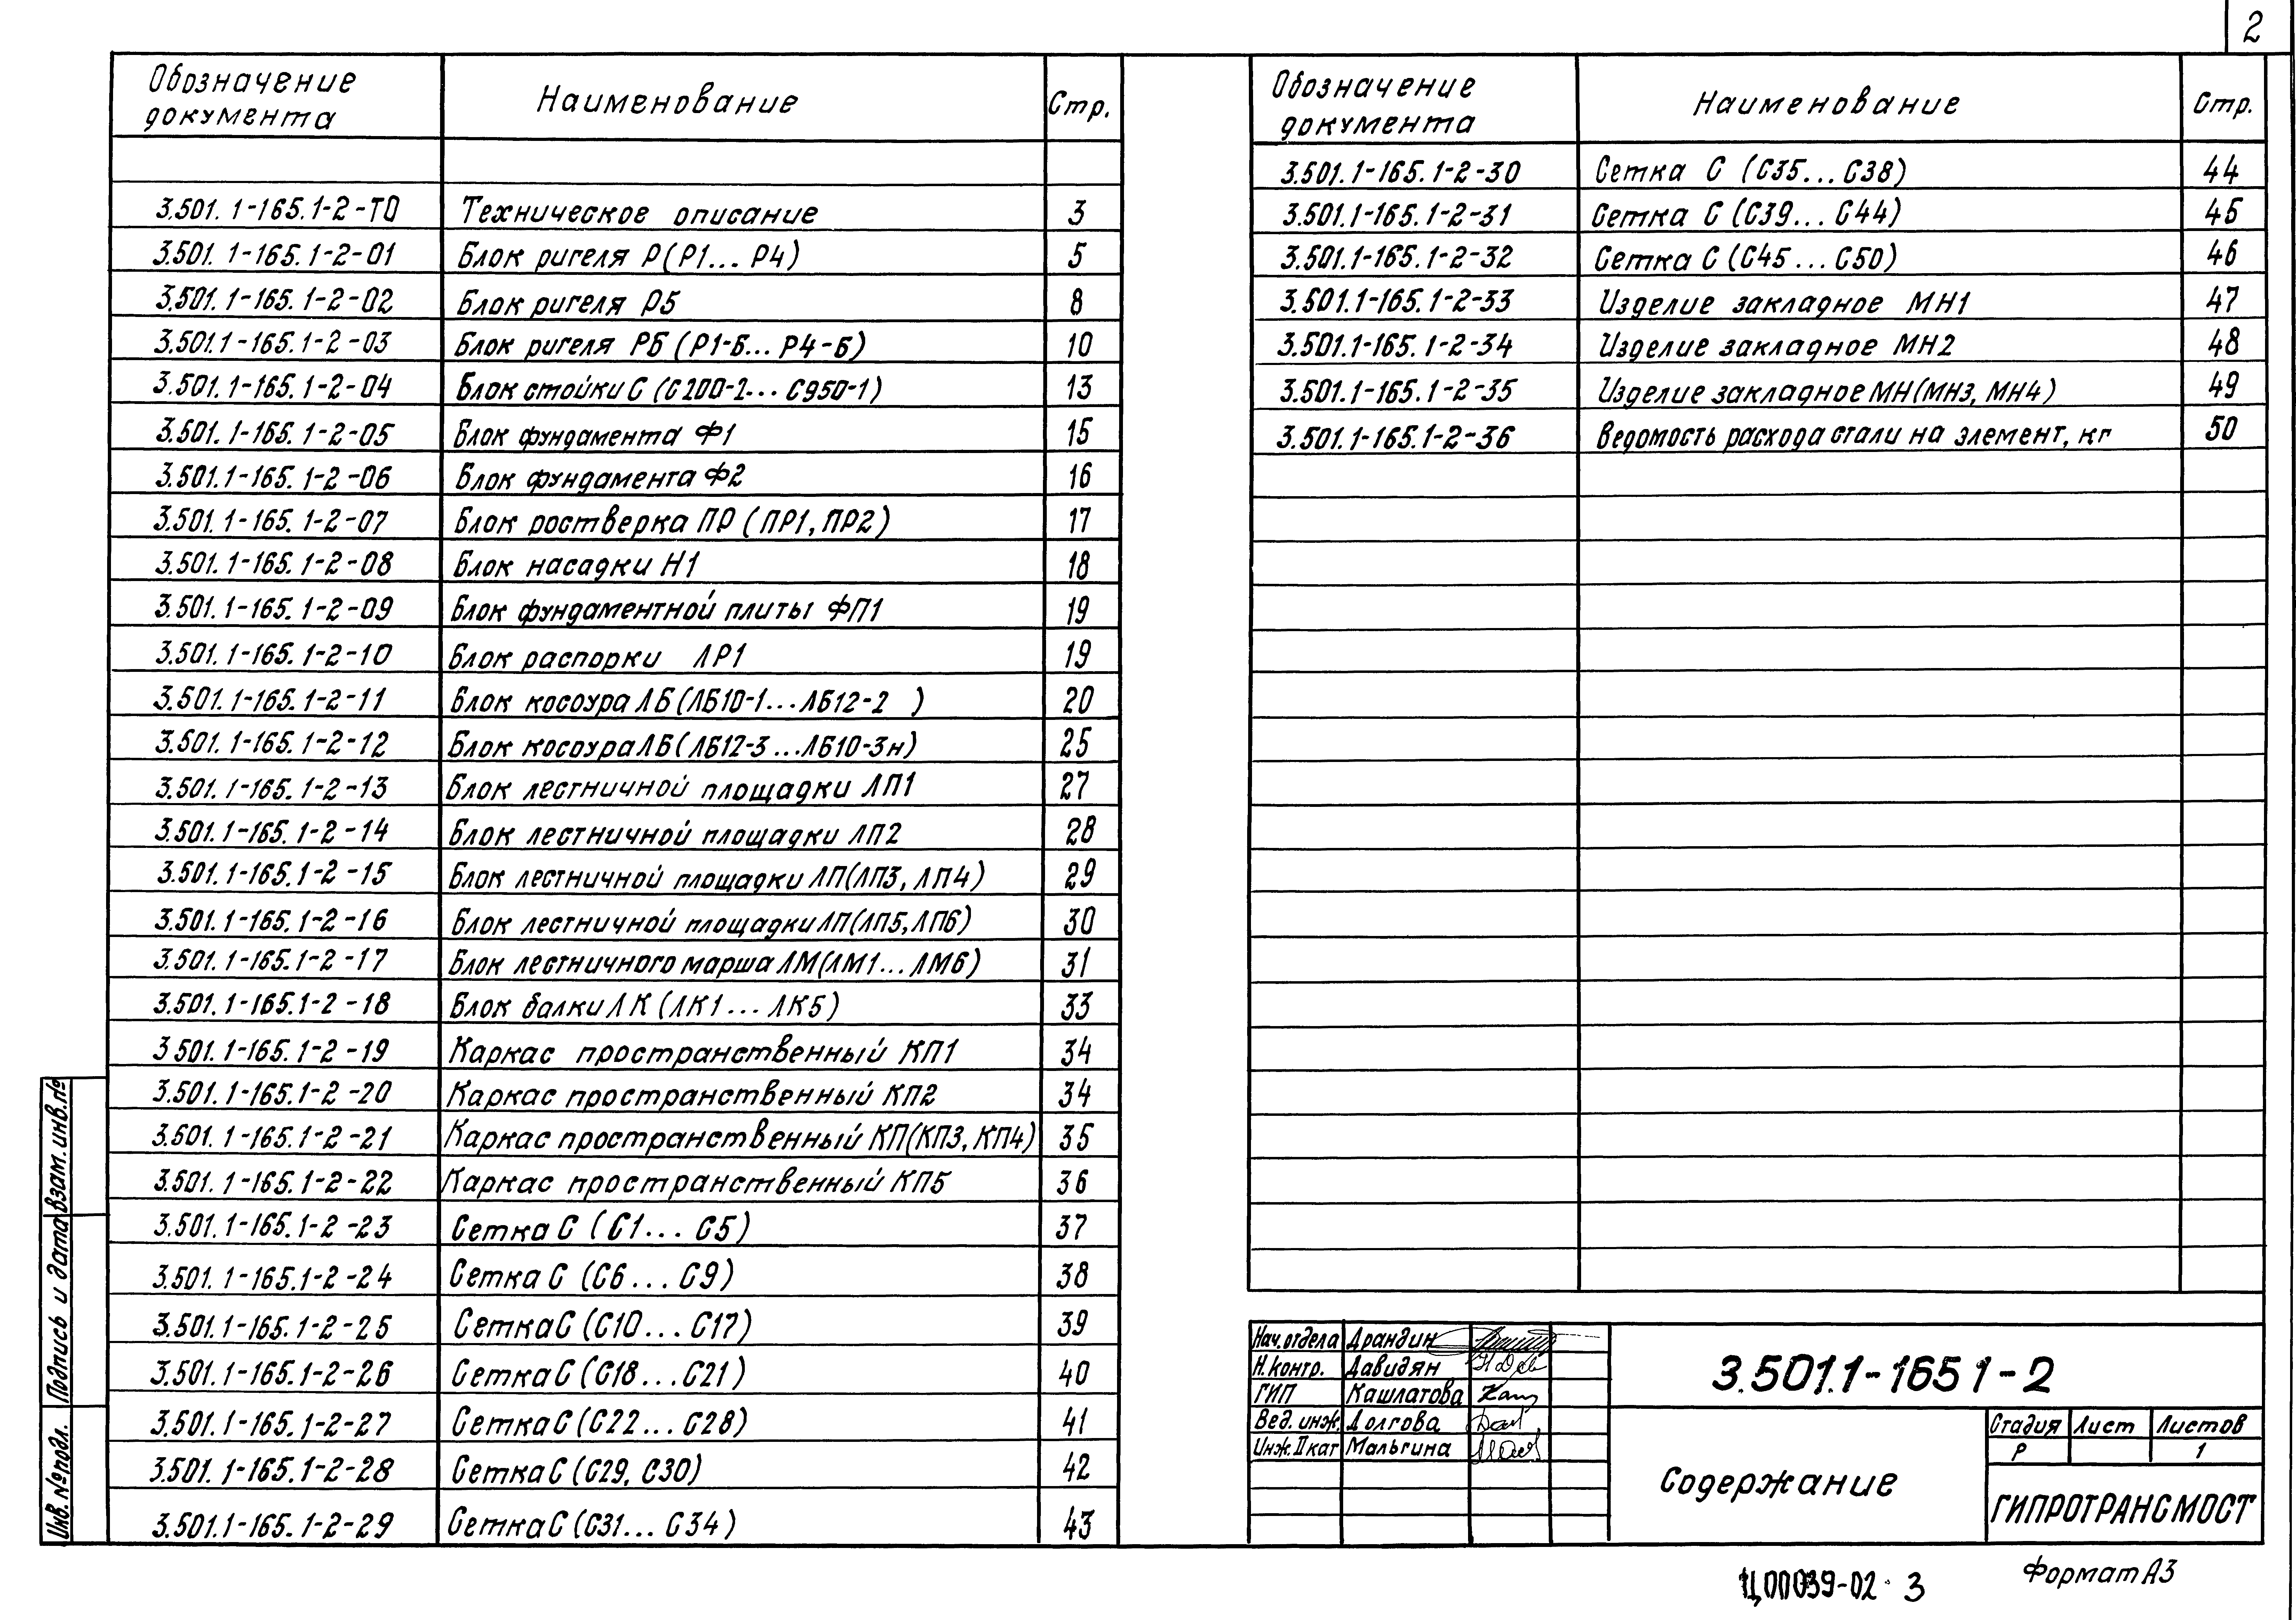 2
Обозначение документа Наименование Стр.
3.501.1-165.1-2-ТО Техническое описание 3
3.501.1-165.1-2-01 Блок ригеля Р (Р1...Р4) 5
3.501.1-165.1-2-02 Блок ригеля Р5 8
3.501.1-165.1-2-03 Блок ригеля РБ (Р1-Б...Р4-Б) 10
3.501.1-165.1-2-04 Блок стойки С (С200-2...С950-1) 13
3.501.1-165.1-2-05 Блок фундамента Ф1 15
3.501.1-165.1-2-06 Блок фундамента Ф2 16
3.501.1-165.1-2-07 Блок ростверка ПР (ПР1, ПР2) 17
3.501.1-165.1-2-08 Блок насадки Н1 18
3.501.1-165.1-2-09 Блок фундаментной плиты ФП1 19
3.501.1-165.1-2-10 Блок распорки ЛР1 19
3.501.1-165.1-2-11 Блок косоура ЛБ (ЛБ10-1...ЛБ12-2 ) 20
3.501.1-165.1-2-12 Блок косоура ЛБ (ЛБ12-3...ЛБ10-3н) 25
3.501.1-165.1-2-13 Блок лестничной площадки ЛП1 27
3.501.1-165.1-2-14 Блок лестничной площадки ЛП2 28
3.501.1-165.1-2-15 Блок лестничной площадки ЛП (ЛП3, ЛП4) 29
3.501.1-165.1-2-16 Блок лестничной площадки ЛП (ЛП5, ЛП6) 30
3.501.1-165.1-2-17 Блок лестничного марша ЛМ (ЛМ1...ЛМ6) 31
3.501.1-165.1-2-18 Блок балки ЛК (ЛК1...ЛК5) 33
3 501.1-165.1-2-19 Каркас пространственный КП1 34
3.501.1-165.1-2-20 Каркас пространственный КП2 34
3.501.1-165.1-2-21 Каркас пространственный КП (КП3, КП4) 35
3.501.1-165.1-2-22 Каркас пространственный КП5 36
3.501.1-165.1-2-23 Сетка С (С1...С5) 37
3.501.1-165.1-2-24 Сетка С (С6...С9) 38
3.501.1-165.1-2-25 Сетка С (С10...С17) 39
3.501.1-165.1-2-26 Сетка С (С18...С21) 40
3.501.1-165.1-2-27 Сетка С (С22...С28) 41
3.501.1-165.1-2-28 Сетка С (С29, С30) 42
3.501.1-165.1-2-29 Сетка С (С31...С34) 43
Обозначение документа Наименование Стр.
3.501.1-165.1-2-30 Сетка С (С35...С38) 44
3.501.1-165.1-2-31 Сетка С (С39...С44) 45
3.501.1-165.1-2-32 Сетка С (С45...С50) 46
3.501.1-165.1-2-33 Изделие закладное МН1 47
3.501.1-165.1-2-34 Изделие закладное МН2 48
3.501.1-165.1-2-35 Изделие закладное МН (МН3, МН4) 49
3.501.1-165.1-2-36 Ведомость расхода стали на элемент, кг 50
Взам. инв. №
Подпись и дата
Инв. № подл.
Нач. отдела Драндин
Н. контр. Давидян
ГИП Кашлатова
Вед. инж. Долгова
Инж. II кат Мальгина
3.501.1-165 1-2
Содержание
Стадия Лист Листов
Р 1
ГИПРОТРАНСМОСТ
Ц00039-02 3
Формат А3